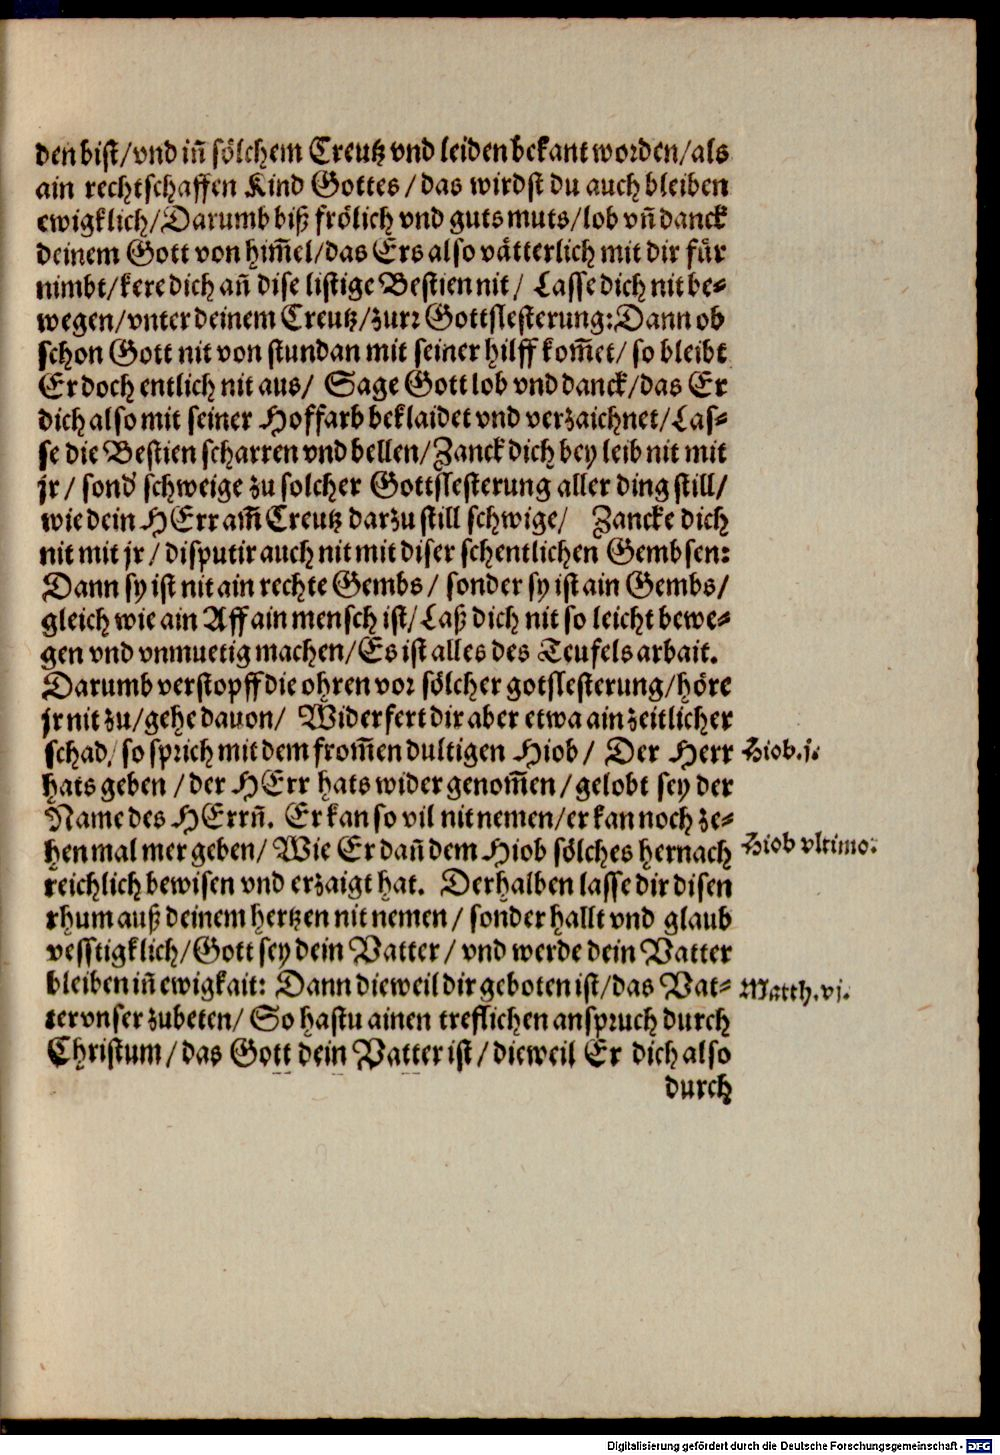 den bist/vnd iñ sölchem Creutz vnd leiden bekant worden/als
ain rechtschaffen Kind Gottes/das wirdst du auch bleiben
ewigklich/Darumb biß frölich vnd guts muts/lob vñ danck
deinem Gott von him̃el/das Ers also vätterlich mit dir für
nimbt/kere dich añ dise listige Bestien nit/ Lasse dich nit be-
wegen/vnter deinem Creutz/zur Gottslesterung: Dann ob
schon Gott nit von stundan mit seiner hilff kom̃et/ so bleibt
Er doch entlich nit aus/ Sage Gott lob vnd danck/das Er
dich also mit seiner Hoffarb beklaidet vnd verzaichnet/Las-
se die Bestien scharren vnd bellen/Zanck dich bey leib nit mit
jr/ sond' schweige zu solcher Gottslesterung aller ding still/
wie dein HErr am̃ Creutz darzu still schwige/ Zancke dich
nit mit jr/ disputir auch nit mit diser schentlichen Gembsen:
Dann sy ist nit ain rechte Gembs/ sonder sy ist ain Gembs/
gleich wie ain Aff ain mensch ist/Laß dich nit so leicht bewe-
gen vnd vnmuetig machen/Es ist alles des Teufels arbait.
Darumb verstopff die ohren vor sölcher gotslesterung/höre
jr nit zu/gehe dauon/ Widerfert dir aber etwa ain zeitlicher
schad/ so sprich mit dem from̃en dultigen Hiob/ Der Herr
Hiob.j.
hats geben/der HErr hats wider genom̃en/gelobt sey der
Name des HErrñ. Er kan so vil nit nemen/er kan noch ze-
hen mal mer geben/ Wie Er dañ dem Hiob sölches hernach
Hiob vltimo:
reichlich bewisen vnd erzaigt hat. Derhalben lasse dir disen
rhum auß deinem hertzen nit nemen/ sonder hallt vnd glaub
vesstigklich/Gott sey dein Vatter/ vnd werde dein Vatter
bleiben iñ ewigkait: Dann dieweil dir geboten ist/das Vat-
Matth.vj.
ter vnser zubeten/ So hastu ainen treflichen anspruch durch
Christum/das Gott dein Vatter ist/dieweil Er dich also
durch
Digitalisierung gefördert durch die Deutsche Forschungsgemeinschaft - DFG